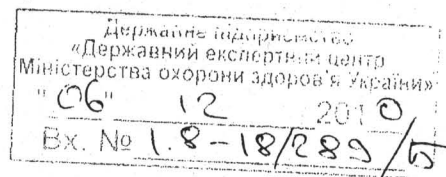 Державне підприємство
«Державний експертний центр
Міністерства охорони здоров'я України»
"06" 12 2010
Вх. № 1.8-18/289/